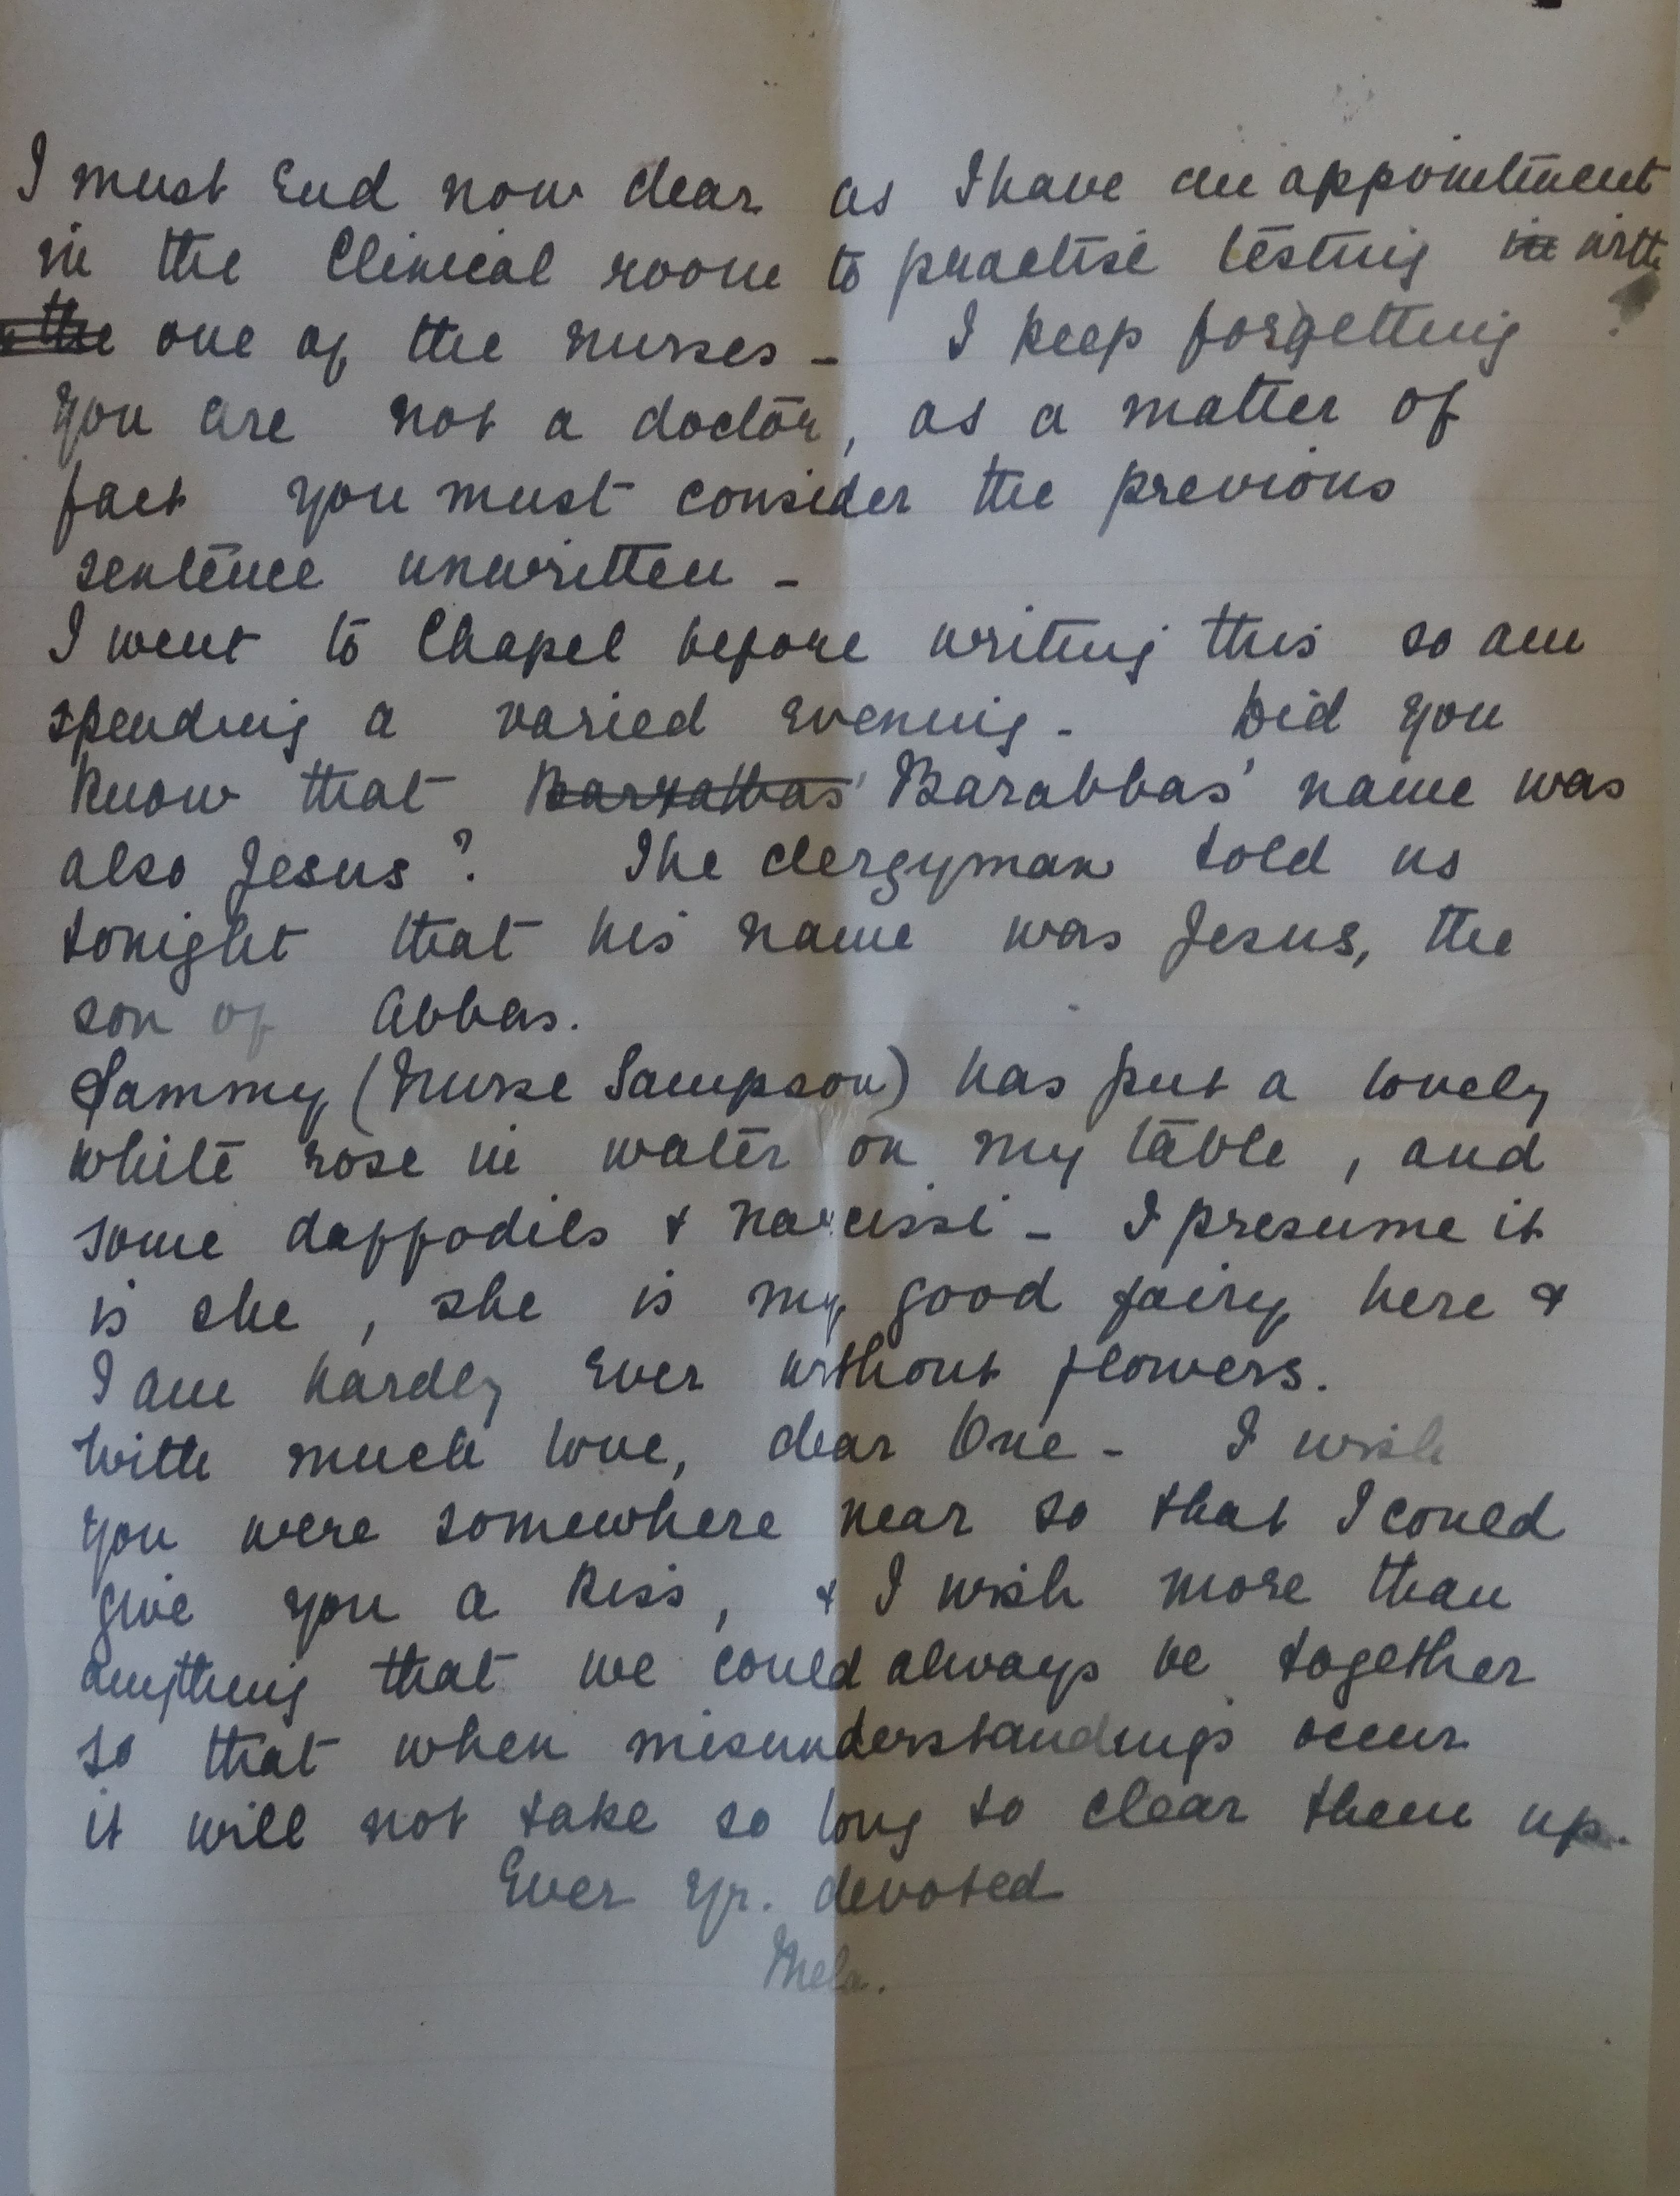 I must end now dear as I have an appointment
in the Clinical room to practise testing in with
the one of the nurses - I keep forgetting
you are not a doctor, as a matter of
fact you must consider the previous
sentence unwritten -
I went to Chapel before writing this so am
spending a varied evening - Did you
know that Barrabbas' Barabbas' name was
also Jesus? The clergyman told us
tonight that his name was Jesus, the
son of Abbas.
Sammy (Nurse Sampson) has put a lovely
white rose in water on my table, and
some daffodils & narcissi - I presume it
is she, she is my good fairy here &
I am hardly ever without flowers.
With much love, dear One - I wish
you were somewhere near so that I could
give you a kiss, & I wish more than
anything that we could always be together
so that when misunderstandings occur
it will not take so long to clear them up.
Ever yr. devoted